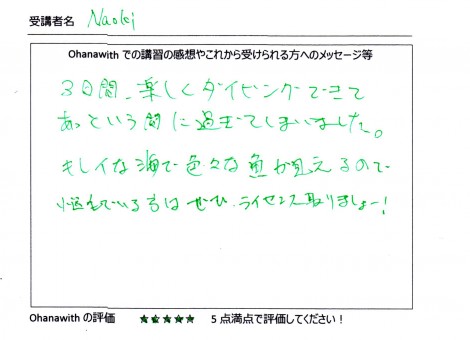 受講者名 Naoki
Ohanawith での講習の感想やこれから受けられる方へのメッセージ等
3日間、楽しくダイビングできて
あっという間に過ぎてしまいました。
キレイな海で色々な魚が見えるので
悩んでいる方はぜひ、ライセンス取りましょー!
Ohanawith の評価 ★★★★★ 5 点満点で評価してください!